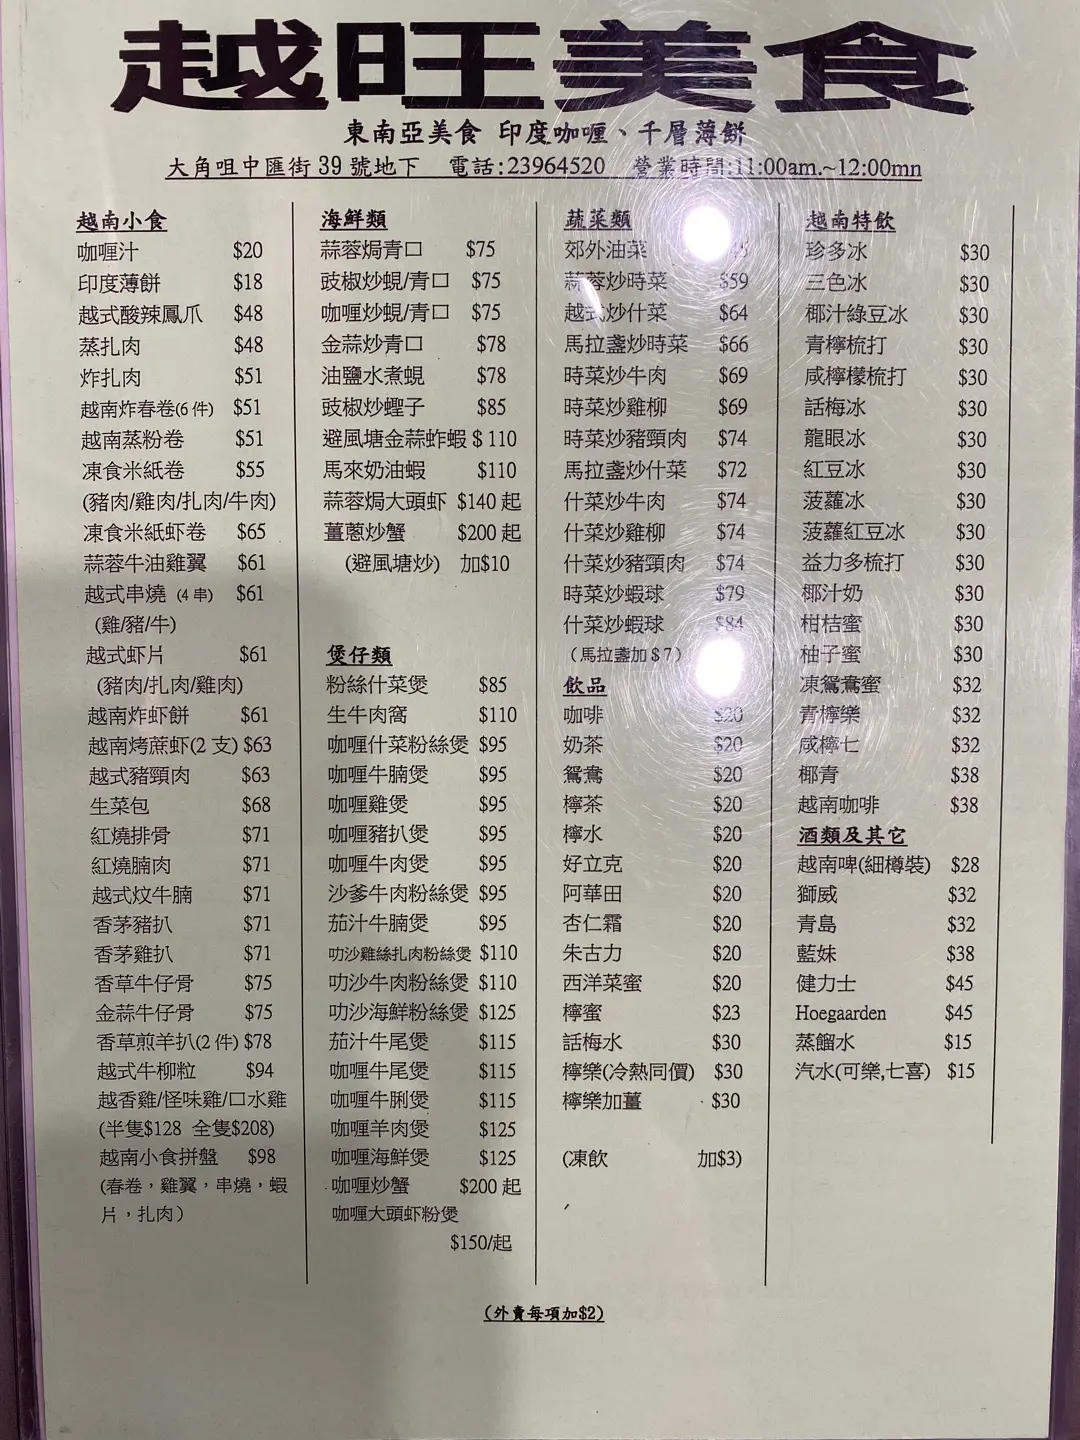 越旺美食
東南亞美食 印度咖喱、千層薄餅
大角咀中匯街 39 號地下 電話:23964520 營業時間:11:00am.~12:00mn
越南小食
咖喱汁 $20
印度薄餅 $18
越式酸辣鳳爪 $48
蒸扎肉 $48
炸扎肉 $51
越南炸春卷(6 件) $51
越南蒸粉卷 $51
凍食米紙卷 $55
(豬肉/雞肉/扎肉/牛肉)
凍食米紙虾卷 $65
蒜蓉牛油雞翼 $61
越式串燒 (4 串) $61
(雞/豬/牛)
越式虾片 $61
(豬肉/扎肉/雞肉)
越南炸虾餅 $61
越南烤蔗虾(2 支) $63
越式豬頸肉 $63
生菜包 $68
紅燒排骨 $71
紅燒腩肉 $71
越式炆牛腩 $71
香茅豬扒 $71
香茅雞扒 $71
香草牛仔骨 $75
金蒜牛仔骨 $75
香草煎羊扒(2 件) $78
越式牛柳粒 $94
越香雞/怪味雞/口水雞
(半隻$128 全隻$208)
越南小食拼盤 $98
(春卷，雞翼，串燒，蝦
片，扎肉)
海鮮類
蒜蓉焗青口 $75
豉椒炒蜆/青口 $75
咖喱炒蜆/青口 $75
金蒜炒青口 $78
油鹽水煮蜆 $78
豉椒炒蟶子 $85
避風塘金蒜蚱蝦 $ 110
馬來奶油蝦 $110
蒜蓉焗大頭虾 $140 起
薑蔥炒蟹 $200 起
(避風塘炒) 加$10
煲仔類
粉絲什菜煲 $85
生牛肉窩 $110
咖喱什菜粉絲煲 $95
咖喱牛腩煲 $95
咖喱雞煲 $95
咖喱豬扒煲 $95
咖喱牛肉煲 $95
沙爹牛肉粉絲煲 $95
茄汁牛腩煲 $95
叻沙雞絲扎肉粉絲煲 $110
叻沙牛肉粉絲煲 $110
叻沙海鮮粉絲煲 $125
茄汁牛尾煲 $115
咖喱牛尾煲 $115
咖喱牛脷煲 $115
咖喱羊肉煲 $125
咖喱海鮮煲 $125
咖喱炒蟹 $200 起
咖喱大頭虾粉煲
$150/起
蔬菜類
郊外油菜
蒜蓉炒時菜 $59
越式炒什菜 $64
馬拉盞炒時菜 $66
時菜炒牛肉 $69
時菜炒雞柳 $69
時菜炒豬頸肉 $74
馬拉盞炒什菜 $72
什菜炒牛肉 $74
什菜炒雞柳 $74
什菜炒豬頸肉 $74
時菜炒蝦球 $79
什菜炒蝦球 $84
（馬拉盞加 $ 7）
飲品
咖啡 $20
奶茶 $20
鴛鴦 $20
檸茶 $20
檸水 $20
好立克 $20
阿華田 $20
杏仁霜 $20
朱古力 $20
西洋菜蜜 $20
檸蜜 $23
話梅水 $30
檸樂(冷熱同價) $30
檸樂加薑 $30
(凍飲 加$3)
越南特飲
珍多冰 $30
三色冰 $30
椰汁綠豆冰 $30
青檸梳打 $30
咸檸檬梳打 $30
話梅冰 $30
龍眼冰 $30
紅豆冰 $30
菠蘿冰 $30
菠蘿紅豆冰 $30
益力多梳打 $30
椰汁奶 $30
柑桔蜜 $30
柚子蜜 $30
凍鴛鴦蜜 $32
青檸樂 $32
咸檸七 $32
椰青 $38
越南咖啡 $38
酒類及其它
越南啤(細樽裝) $28
獅威 $32
青島 $32
藍妹 $38
健力士 $45
Hoegaarden $45
蒸餾水 $15
汽水(可樂,七喜) $15
(外賣每項加$2)